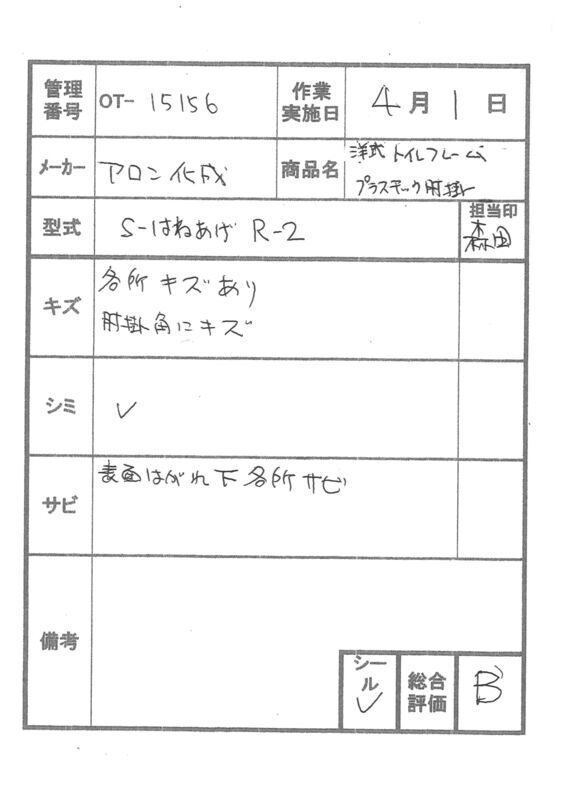 管理番号 OT- 15156 作業実施日 4月1日
メーカー アロン化成 商品名 洋式トイレフレーム
プラスチック肘掛
型式 S-はねあげ R-2 担当印 森田
キズ 各所キズあり
肘掛角にキズ
シミ ✓
サビ 表面はがれ下各所サビ
備考
シール ✓ 総合評価 B